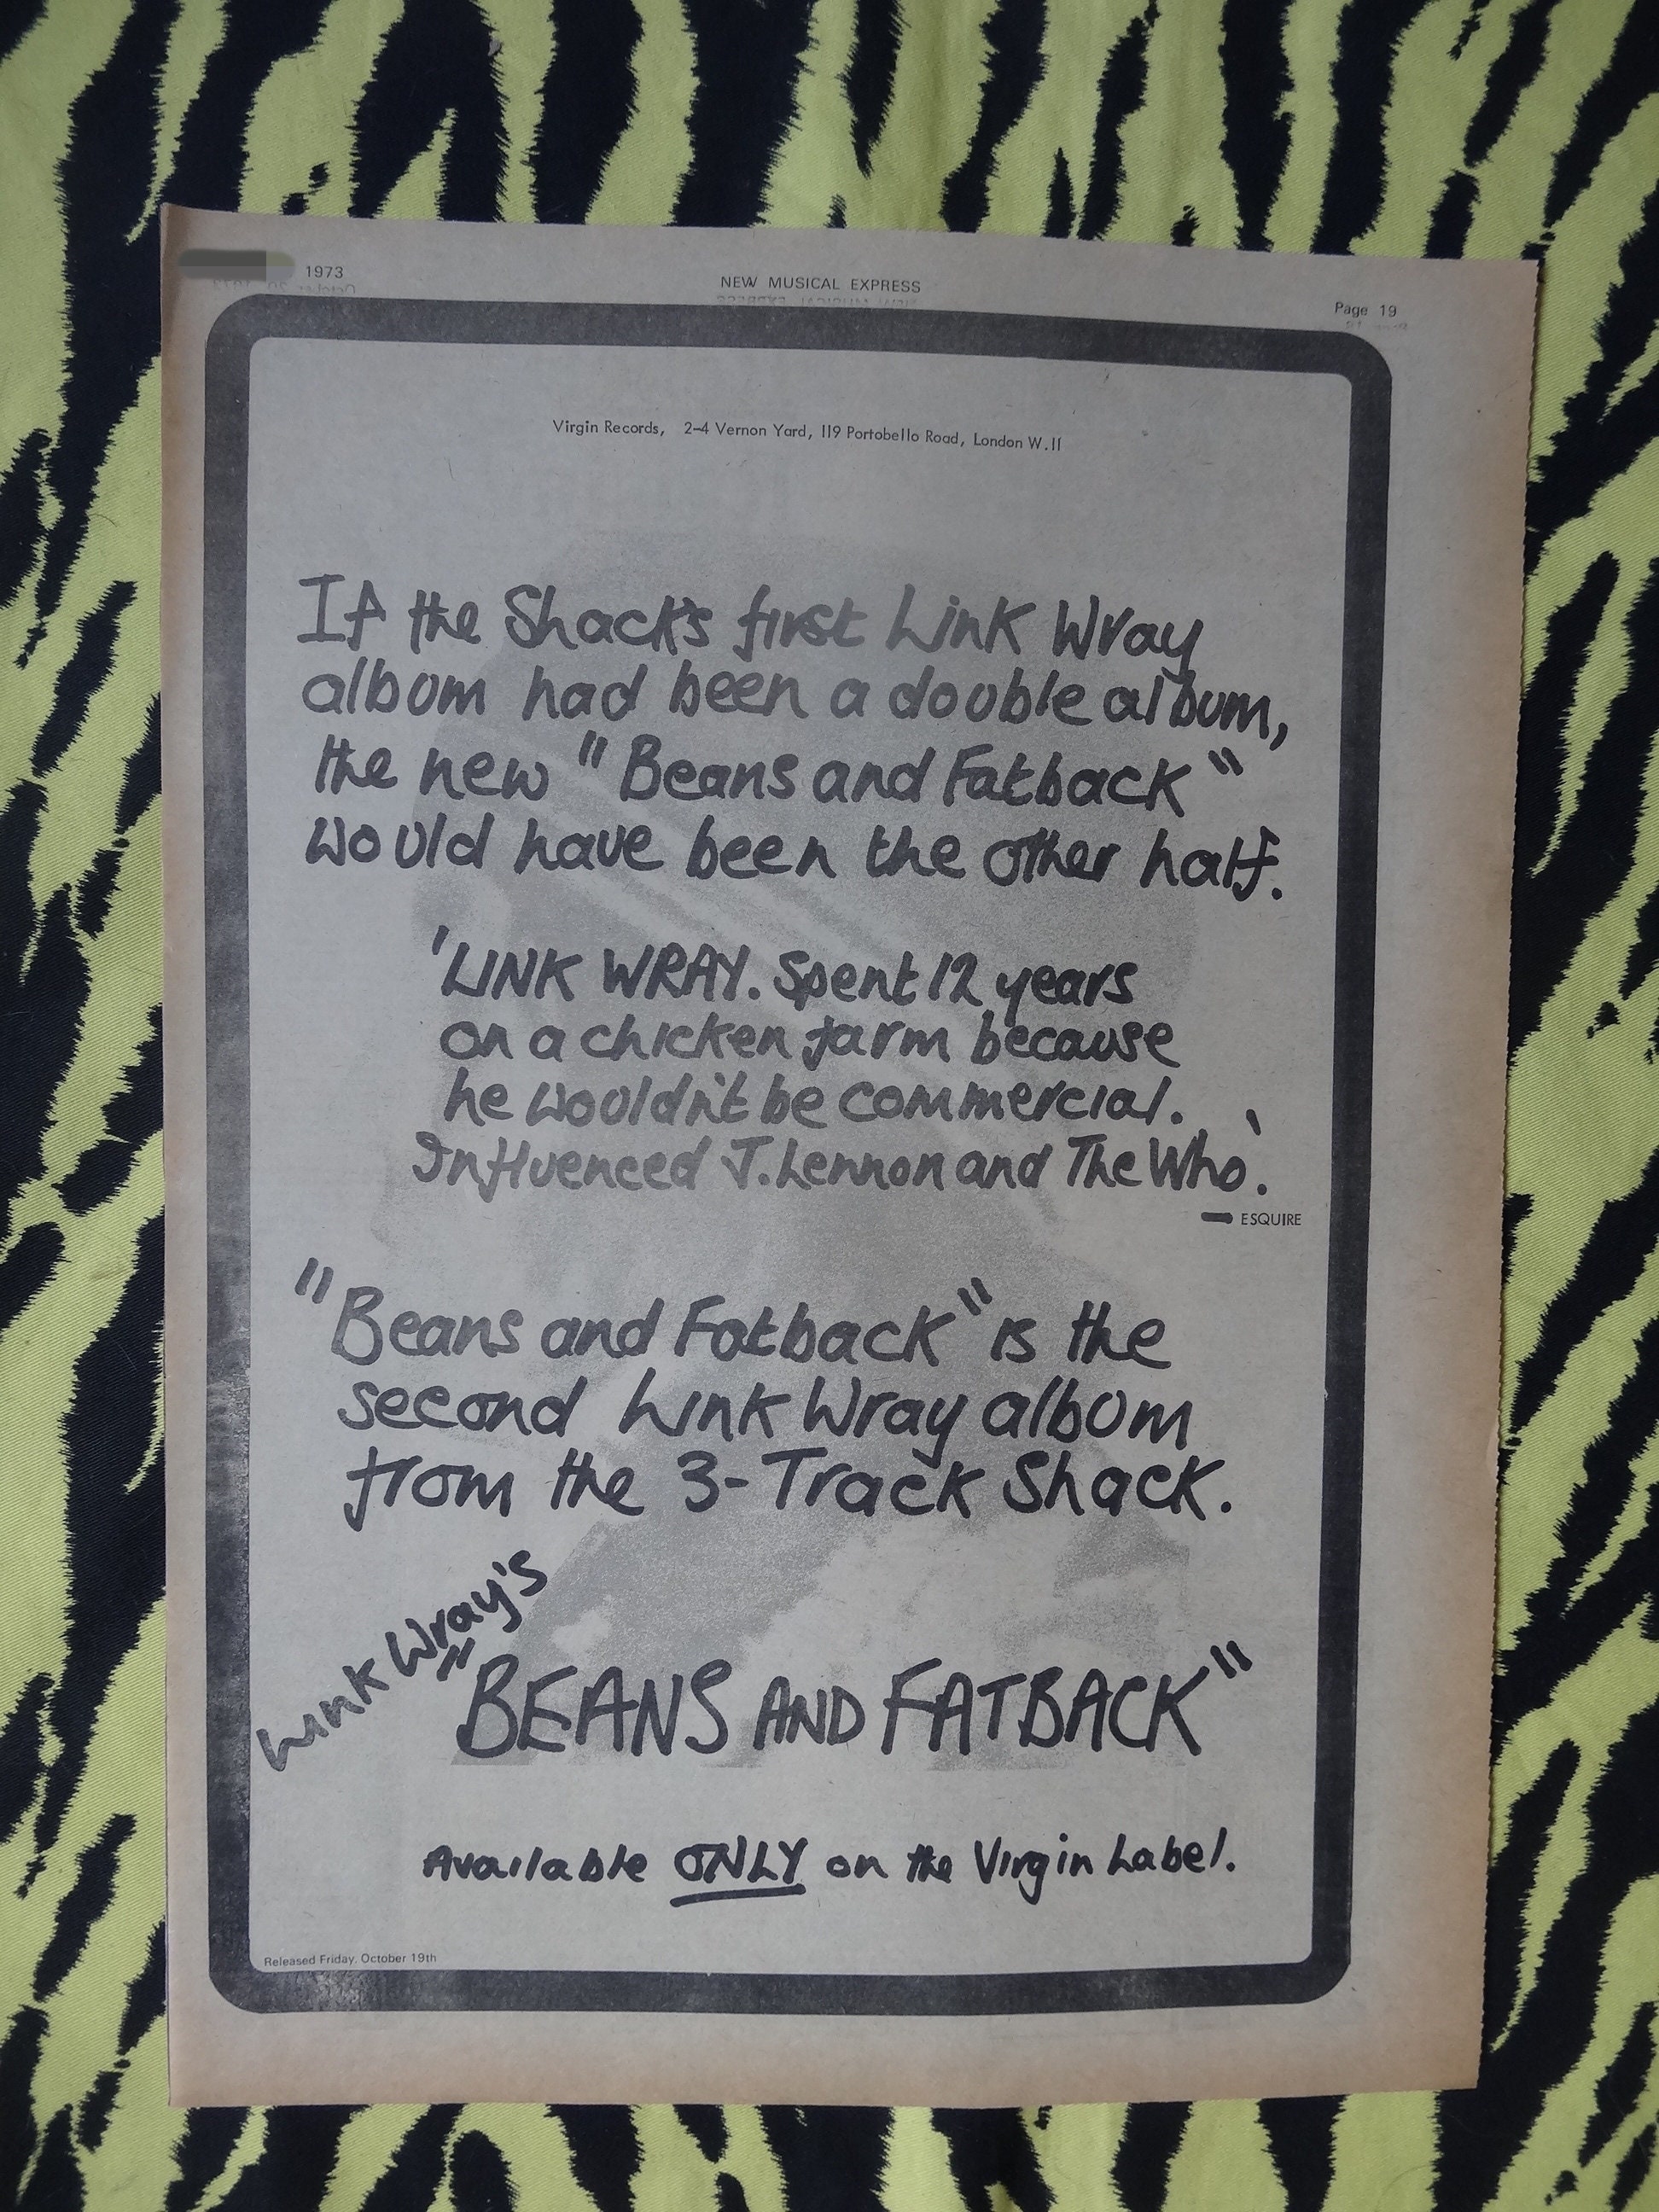 1973
NEW MUSICAL EXPRESS
Page 19
Virgin Records, 2-4 Vernon Yard, 119 Portobello Road, London W.11
If the Shack's first Link Wray
album had been a double album,
the new "Beans and Fatback"
would have been the other half.
'LINK WRAY. Spent 12 years
on a chicken farm because
he wouldn't be commercial.
Influenced J. Lennon and The Who.'
— ESQUIRE
"Beans and Fatback" is the
second Link Wray album
from the 3-Track Shack.
Link Wray's
"BEANS AND FATBACK"
Available ONLY on the Virgin Label.
Released Friday, October 19th